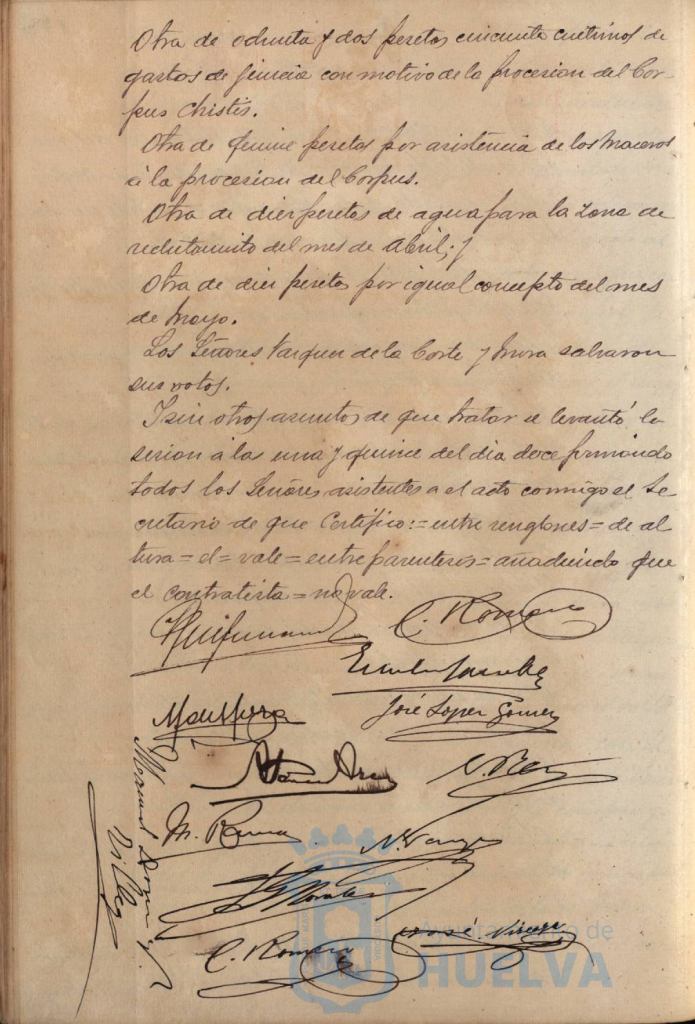 Otra de ochenta y dos pesetas cincuenta centimos de
gastos de funcion con motivo de la procesion del Cor-
pus Chistis.
Otra de quince pesetas por asistencia de los Maceros
á la procesion del Corpus.
Otra de diez pesetas de agua para la zona de
reclutamiento del mes de Abril; y
Otra de diez pesetas por igual concepto del mes
de Mayo.
Los Señores Vazquez de la Corte y Mora salvaron
sus votos.
Y sin otros asuntos de que tratar se levantó la
sesion á las una y quince del dia doce firmando
todos los Señores asistentes a el acto conmigo el Se-
cretario de que Certifico:= entre renglones = de al
tura = el = vale = entre parentesis = añadiendo que
el contratista = no vale.
C. Romero
José Lopez Gomez
M. Mora
M. Rama
N. Vazquez
Morales
C. Romero
José
Manuel
Ayuntamiento de
HUELVA